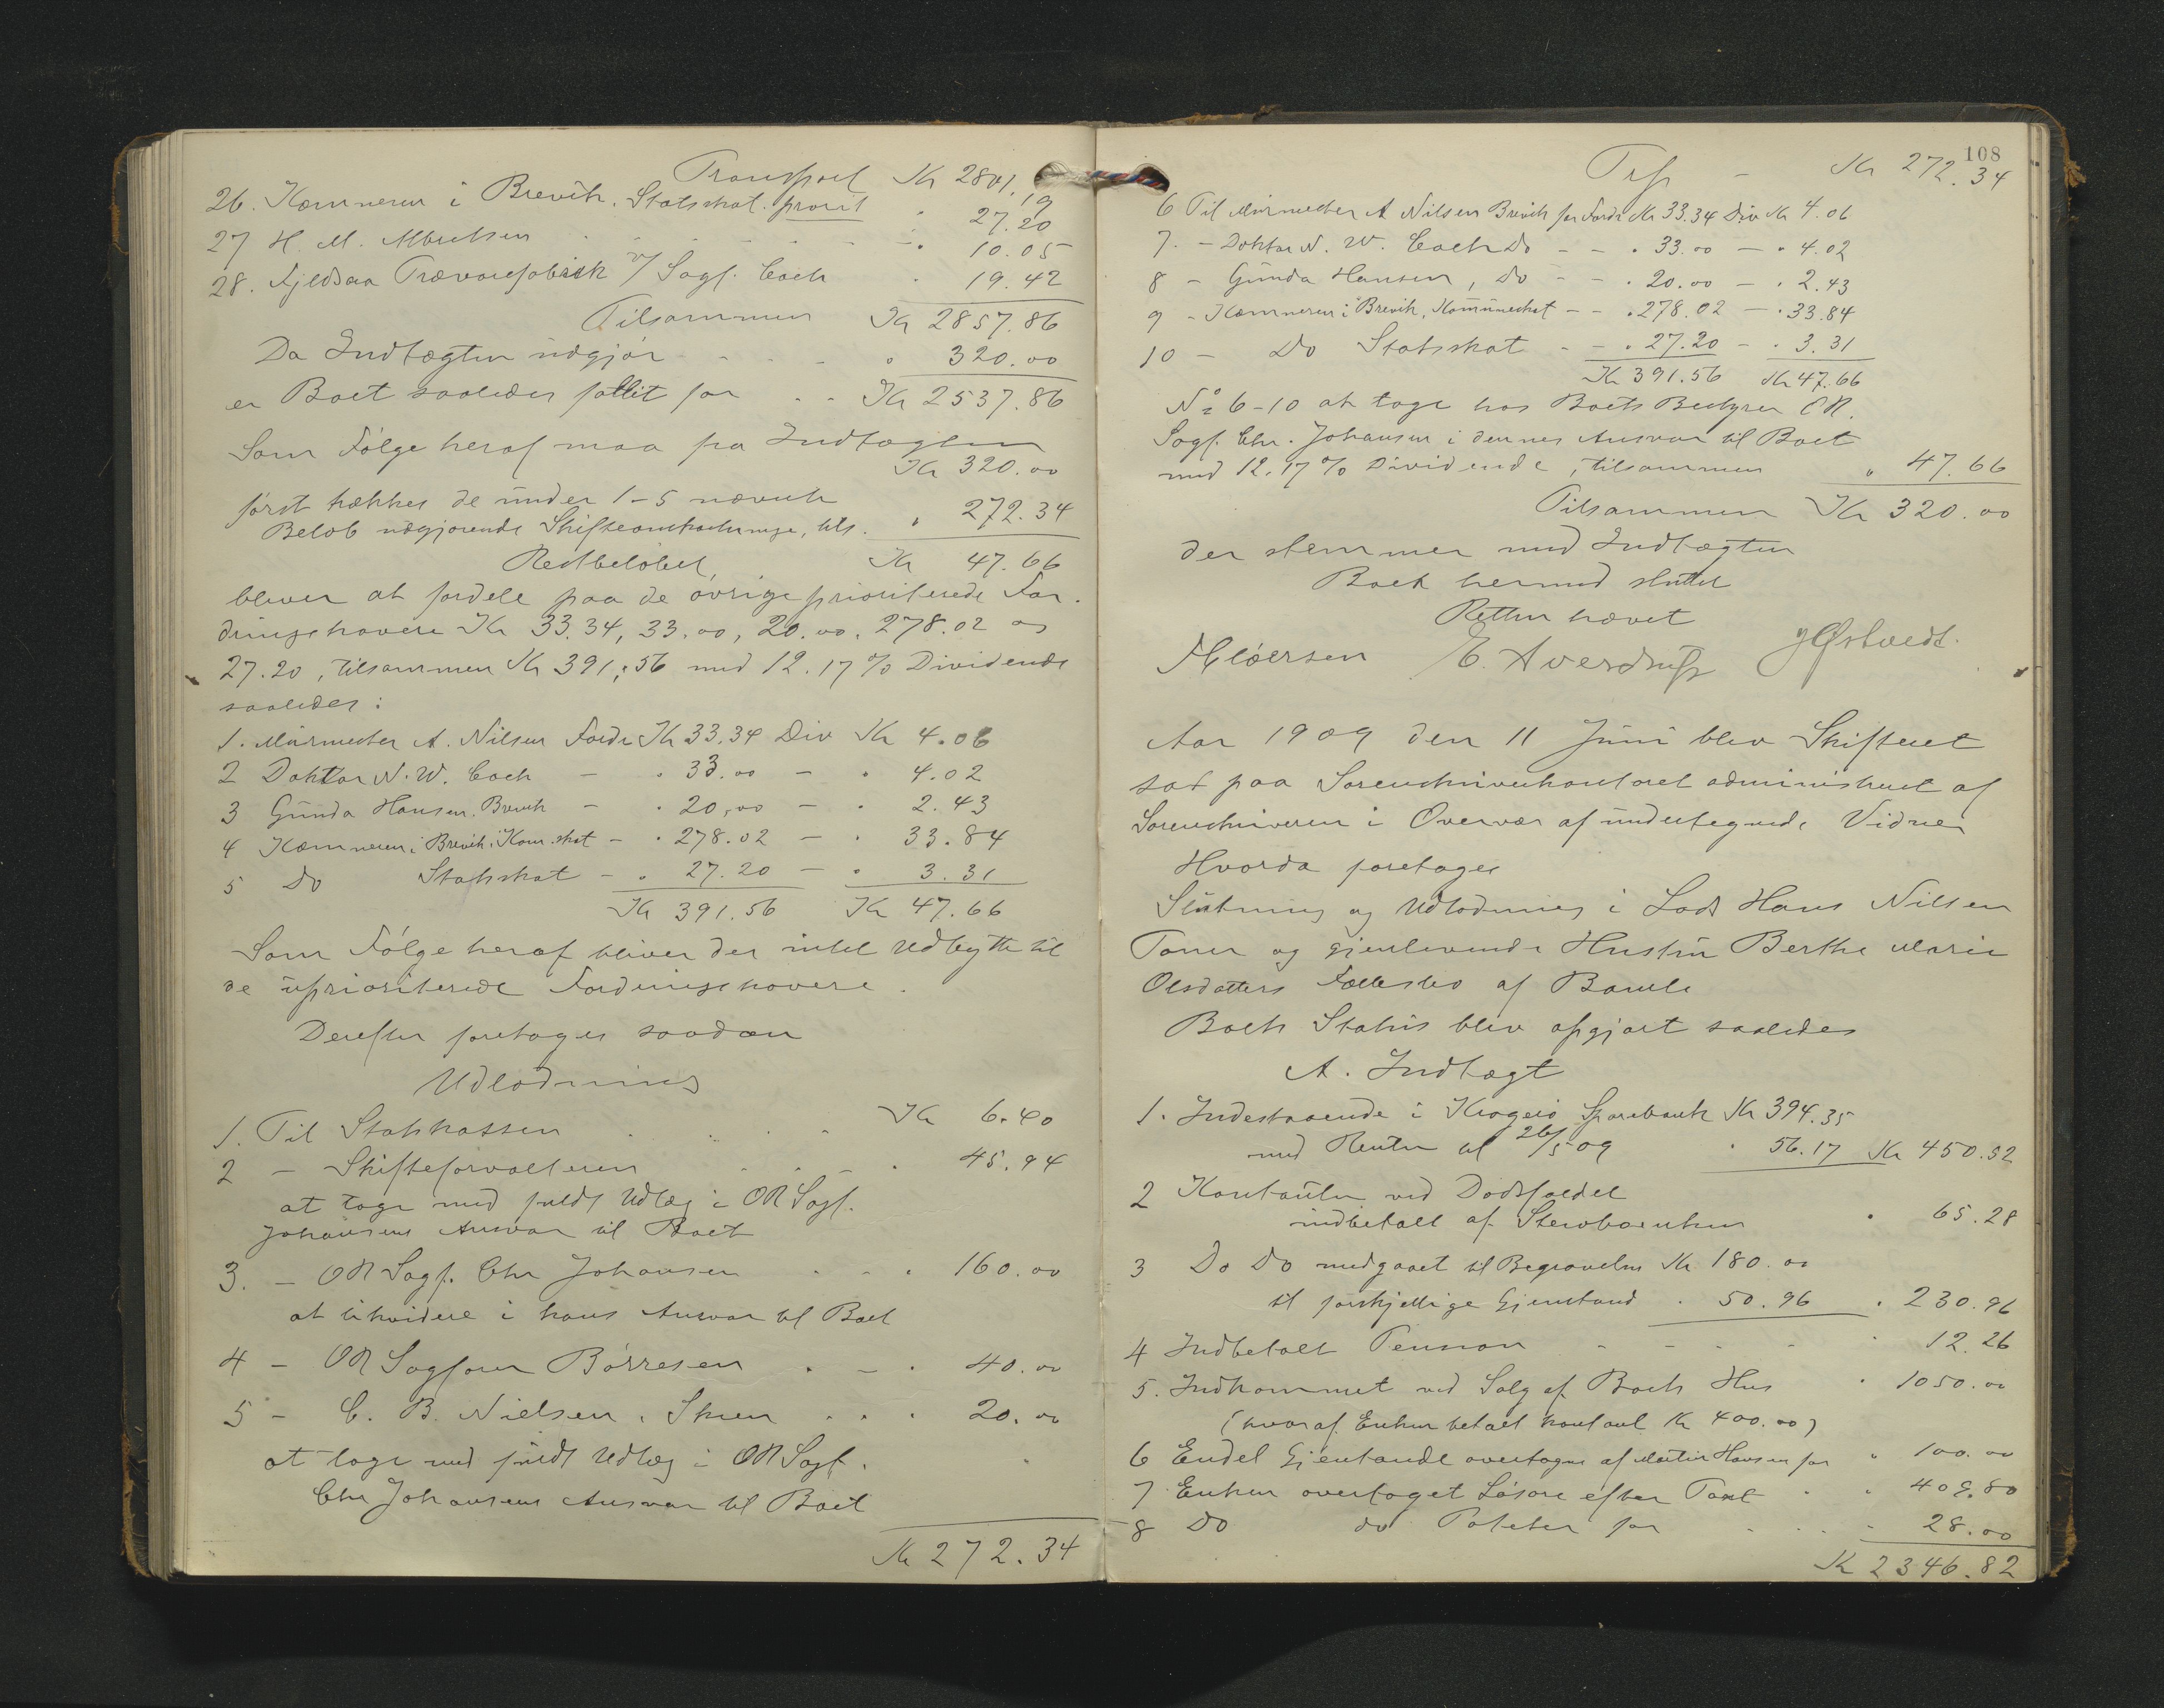 Transport Kr 2801.19
26. Kæmneren i Brevik. Statsskat. priorit " 27.20
27 H. M. Albretsen " 10.05
28. Fjeldsaa Trævarefabrik v/ Sagf. Coch " 19.42
Tilsammen Kr 2857.86
Da Indtægten udgjør " 320.00
er Boet saaledes fallit for Kr 2537.86
Som Følge heraf maa fra Indtægten
Kr 320.00
først trækkes de under 1-5 nævnte
Beløb udgjørende Skifteomkostninge, tils. " 272.34
Restbeløbet, Kr 47.66
bliver at fordele paa de øvrige prioriterede For-
dringshavere Kr 33.34, 33.00, 20.00, 278.02 og
27.20, tilsammen Kr 391.56 med 12.17 % Dividende
saaledes:
1. Murmester A. Nilsen Fordr Kr 33.34 Div Kr 4.06
2 Doktor N. W. Coch - " 33.00 - " 4.02
3 Gunda Hansen. Brevik - " 20.00 - " 2.43
4 Kæmneren i Brevik. Kom. skat - " 278.02 - " 33.84
5 Do Statsskat - " 27.20 - " 3.31
Kr 391.56 Kr 47.66
Som Følge heraf bliver der intet Udbytte til
de uprioriterede Fordringshavere.
Derefter foretages saadan
Udlodning
1. Til Statskassen Kr 6.40
2 - Skifteforvalteren " 45.94
at tage med fuldt Udlæg i OR Sagf.
Johansens Ansvar til Boet
3. - OR Sagf. Chr Johansen " 160.00
at likvidere i hans Ansvar til Boet
4 - OR Sagfører Børresen " 40.00
5 - C. B. Nielsen, Skien " 20.00
at tage med fuldt Udlæg i OR Sagf.
Chr Johansens Ansvar til Boet
Kr 272.34
108
Trsp - Kr 272.34
6 Til Murmester A Nilsen Brevik for Fordr Kr 33.34 Div Kr 4.06
7. - Doktor N. W. Coch Do - - " 33.00 - " 4.02
8 - Gunda Hansen, Do - - " 20.00 - " 2.43
9 - Kæmneren i Brevik, Kommuneskat - - " 278.02 - " 33.84
10 - Do Statsskat - - " 27.20 - " 3.31
Kr 391.56 Kr 47.66
No 6-10 at tage hos Boets Bestyrer OR.
Sagf. Chr. Johansen i dennes Ansvar til Boet
med 12.17 % Dividende, tilsammen " 47.66
Tilsammen Kr 320.00
der stemmer med Indtægten
Boet hermed sluttet
Retten hævet
E. Averdrup J Østvedt.
Aar 1909 den 11 Juni blev Skifteret
sat paa Sorenskriverkontoret administreret af
Sorenskriveren i Overvær af undertegnede Vidner
Hvorda foretages
Slutning og Udlodning i Lods Hans Nilsen
Toner og gjenlevende Hustru Berthe Marie
Olsdatters Fællesbo af Bamle
Boets Status blev opgjort saaledes
A. Indtægt
1. Indestaaende i Kragerø Sparebank Kr 394.35
med Renter til 26/5 09 " 56.17 Kr 450.52
2 Kontanter ved Dødsfaldet
indbetalt af Stervboenken " 65.28
3 Do Do medgaaet til Begravelse Kr 180.00
til forskjellige Gjenstand " 50.96 " 230.96
4 Indbetalt Pension " 12.26
5. Indkommet ved Salg af Boets Hus " 1050.00
(hvoraf Enken betalt kontant Kr 400.00)
6 Endel Gjenstande overtagne af Martin Hansen for " 100.00
7. Enken overtaget Løsøre efter Taxt " 409.80
8 Do do Poteter for " 28.00
Kr 2346.82